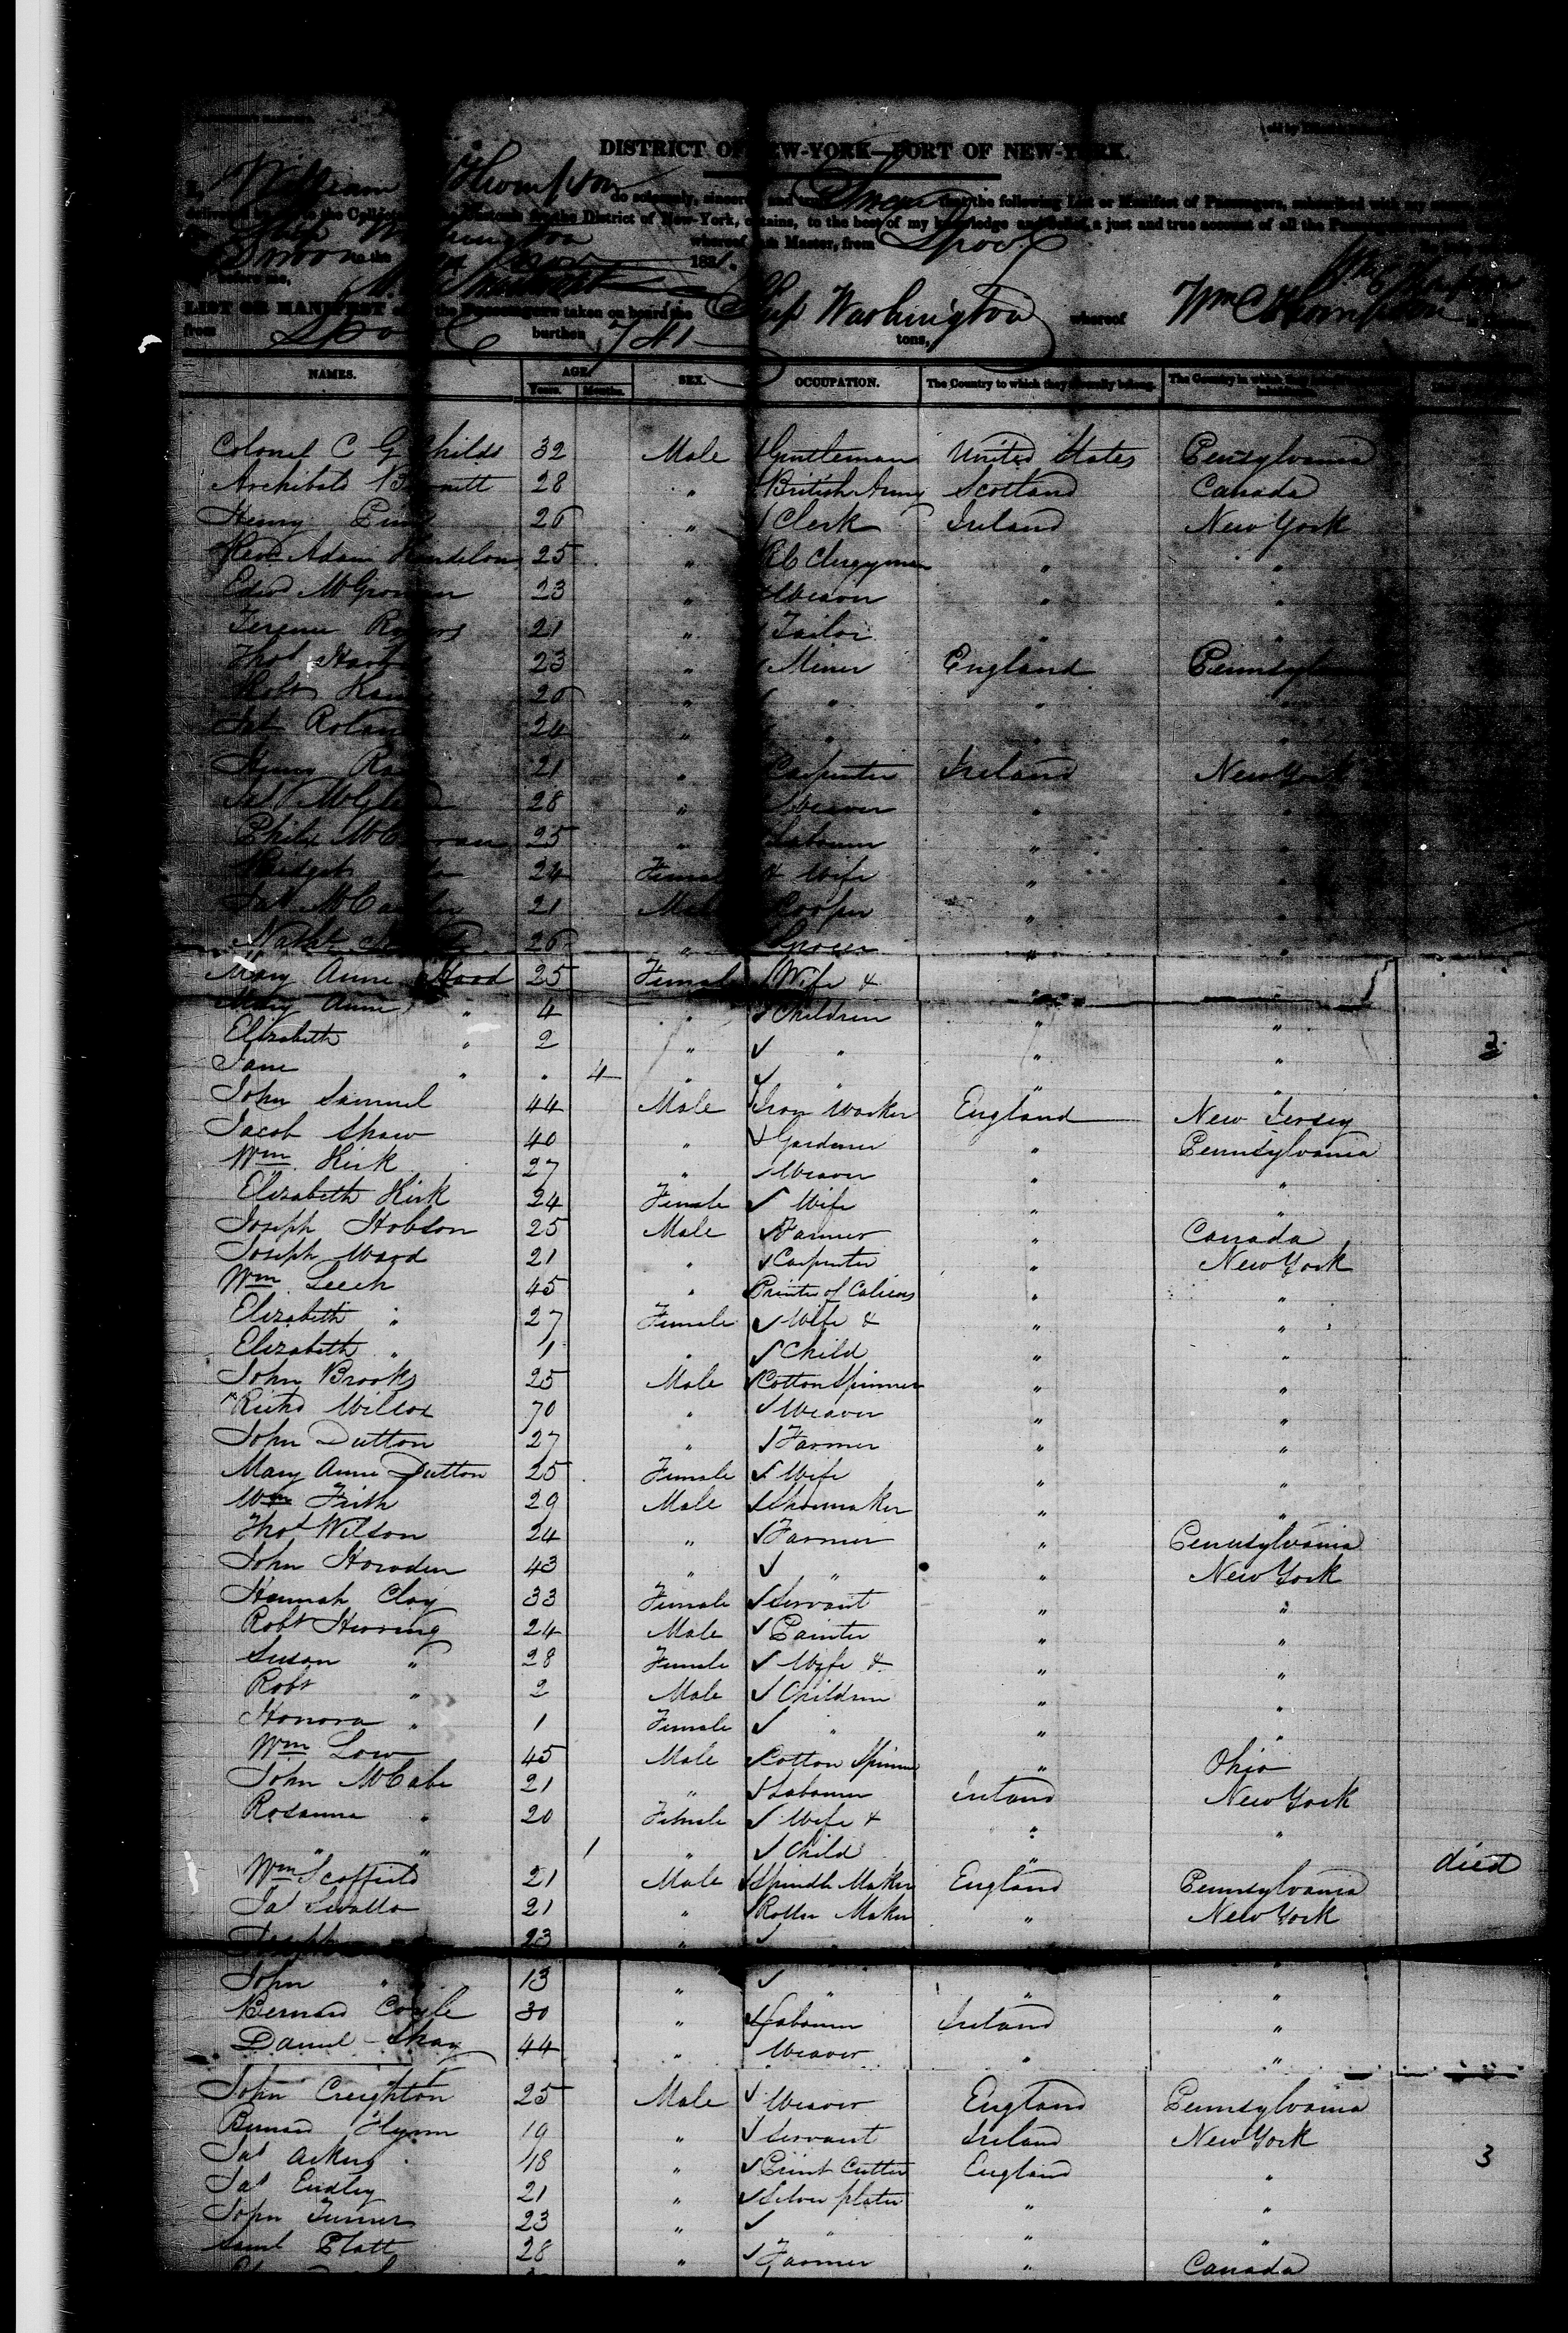 DISTRICT OF NEW-YORK—PORT OF NEW-YORK.
William Thompson do solemnly, sincerely and truly Swear that the following List or Manifest of Passengers, subscribed with my name,
to the Collector of the Customs for the District of New-York, contains, to the best of my knowledge and belief, a just and true account of all the Passengers
Ship Washington whereof I am Master, from Lpool
Sworn to the 183
before me, Wm C Thompson
LIST OR MANIFEST of the Passengers taken on board the Ship Washington whereof Wm C Thompson is Master,
from Lpool burthen 741 tons,
NAMES. AGE. Years. Months. SEX. OCCUPATION. The Country to which they severally belong. The Country in which they
Colonel C G Childs 32 Male Gentleman United States Pensylvania
Archibald 28 " British Army Scotland Canada
Henry 26 " Clerk Ireland New York
Revd Adam 25 " RC Clergyman " "
Edwd 23 " Weaver " "
Terence Rogers 21 " Tailor " "
Thos 23 " Miner England Pennsylvania
Robt 20 " " " "
Jas 24 " " " "
Henry 21 " Carpenter Ireland New York
Jas 28 " Weaver " "
Philip 25 " Labourer " "
Bridget 24 Female & Wife " "
Jas 21 Male Cooper " "
26 " Grocer " "
Mary Anne Hood 25 Female Wife & " "
Mary Anne " 4 " Children " "
Elizabeth " 2 " " " " 2
Jane " . 4 " " " "
John Samuel 44 Male Iron Worker England New Jersey
Jacob Shaw 40 " Gardener " Pennsylvania
Wm Kirk 27 " Weaver " "
Elizabeth Kirk 24 Female Wife " "
Joseph Hobson 25 Male Farmer " Canada
Joseph Ward 21 " Carpenter " New York
Wm Leech 45 " Printer of Calicoes " "
Elizabeth " 27 Female Wife & " "
Elizabeth " 1 " Child " "
John Brooks 25 Male Cotton Spinner " "
Richd Wilcox 70 " Weaver " "
John Dutton 27 " Farmer " "
Mary Anne Dutton 25 Female Wife " "
Wm Frith 29 Male Shoemaker " "
Thos Wilson 24 " Farmer " Pennsylvania
John Howden 43 " " " New York
Hannah Clay 33 Female Servant " "
Robt Herring 24 Male Painter " "
Susan " 28 Female Wife & " "
Robt " 2 Male Children " "
Honora " 1 Female " " "
Wm Low 45 Male Cotton Spinner " Ohio
John McCabe 21 " Labourer Ireland New York
Rosanna " 20 Female Wife & " "
" " 1 " Child " died
Wm Scoffield 21 Male Spindle Maker England Pennsylvania
Jas 21 " Roller Maker " New York
Joseph 23 "
John " 13 " " " "
Bernard Coyle 30 " Labourer Ireland "
Daniel 44 " Weaver " "
John Creighton 25 Male Weaver England Pennsylvania
Bernard Flynn 19 " Servant Ireland New York
Jas 18 " Print Cutter England " 3
Jas Endley 21 " Silver plater " "
John Turner 23 " " " "
Saml Platt 28 " Farmer " Canada